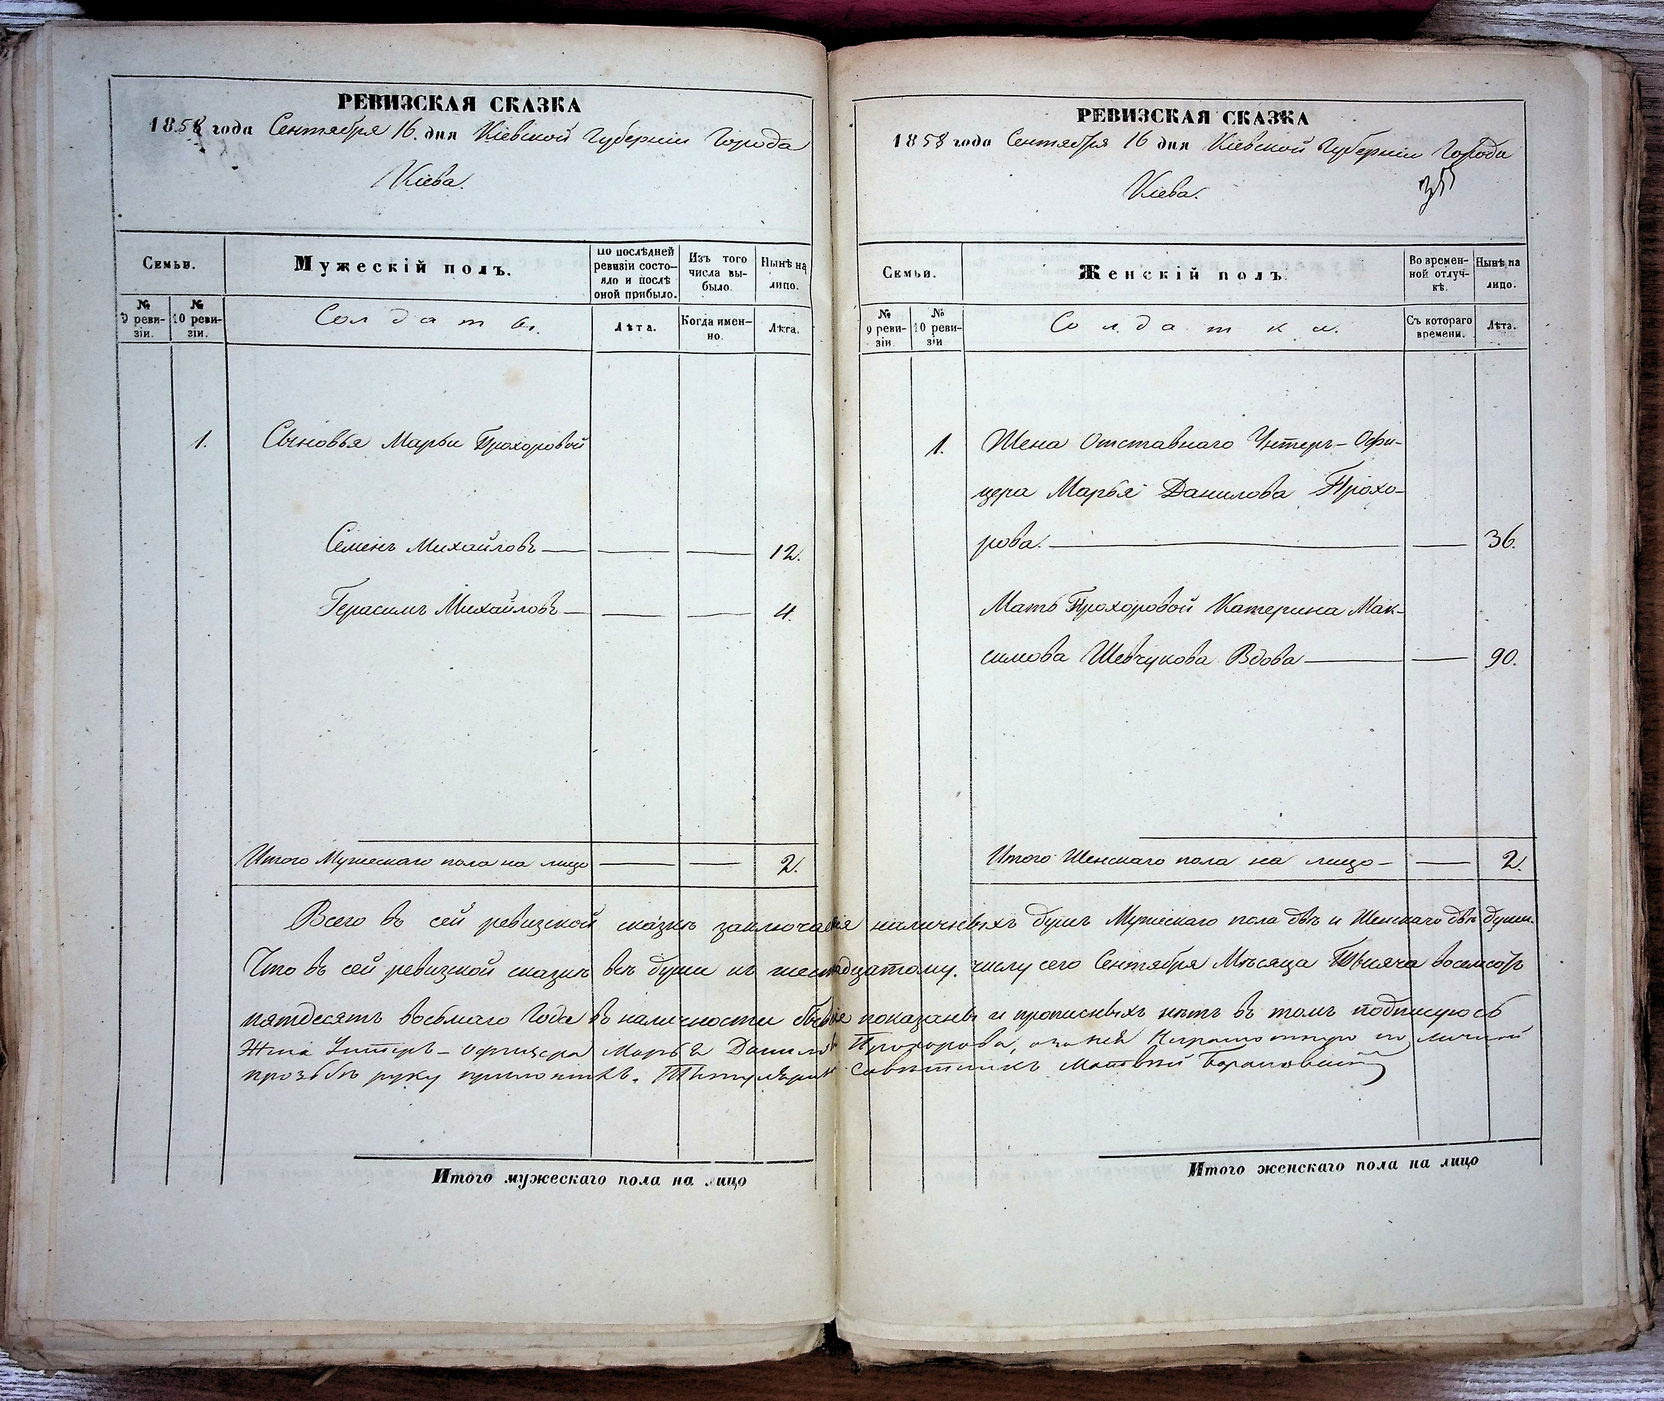 РЕВИЗСКАЯ СКАЗКА
1858 года Сентября 16 дня Кіевской Губерніи Города
Кіева.
Семьи.
Мужескій полъ.
По послѣдней ревизіи состояло и послѣ оной прибыло.
Изъ того числа выбыло.
Нынѣ на лицо.
№ 9 ревизіи.
№ 10 ревизіи.
Солдаты.
Лѣта.
Когда именно.
Лѣта.
1. Сыновья Марьи Прохоровой
Семенъ Михайловъ — — — 12.
Герасимъ Михайловъ — — — 4.
Итого Мужескаго пола на лицо — — 2.
Итого мужескаго пола на лицо
РЕВИЗСКАЯ СКАЗКА
1858 года Сентября 16 дня Кіевской Губерніи Города
Кіева.
355
Семьи.
Женскій полъ.
Во временной отлучкѣ.
Нынѣ на лицо.
№ 9 ревизіи.
№ 10 ревизіи
Солдатки.
Съ котораго времени.
Лѣта.
1. Жена Отставнаго Унтеръ-Офи-
цера Марья Данилова Прохо-
рова. — — 36.
Мать Прохоровой Катерина Мак-
симова Шевчукова Вдова — — 90.
Итого Женскаго пола на лицо — — 2.
Всего въ сей ревизской сказкѣ заключается наличныхъ душъ Мужескаго пола двѣ и Женскаго двѣ души.
Что въ сей ревизской сказкѣ всѣ души къ шестнадцатому числу сего Сентября Мѣсяца Тысяча восемсотъ
пятдесятъ восьмаго Года въ наличности бывшіе показаны и прописныхъ нѣтъ въ томъ подпишуюсь
Жена Унтеръ-офицера Марья Данилова Прохорова, а за неё Неграмотную по личной
прозьбѣ руку приложилъ. Титулярный Совѣтникъ Матвѣй
Итого женскаго пола на лицо